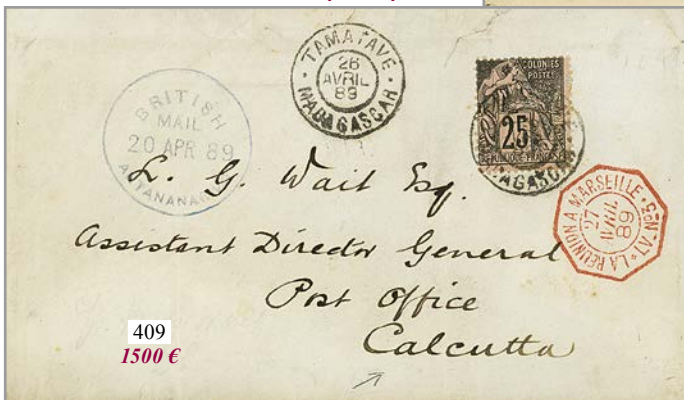 TAMATAVE
26
AVRIL
89
MADAGASCAR
BRITISH
MAIL
20 APR 89
ANTANANARIVO
COLONIES
POSTES
25
REPUBLIQUE FRANCAISE
MADAGASCAR
LA REUNION A MARSEILLE
27
AVRIL
89
L. G. Wait Esq.
Assistant Director General
Post Office
Calcutta
409
1500 €